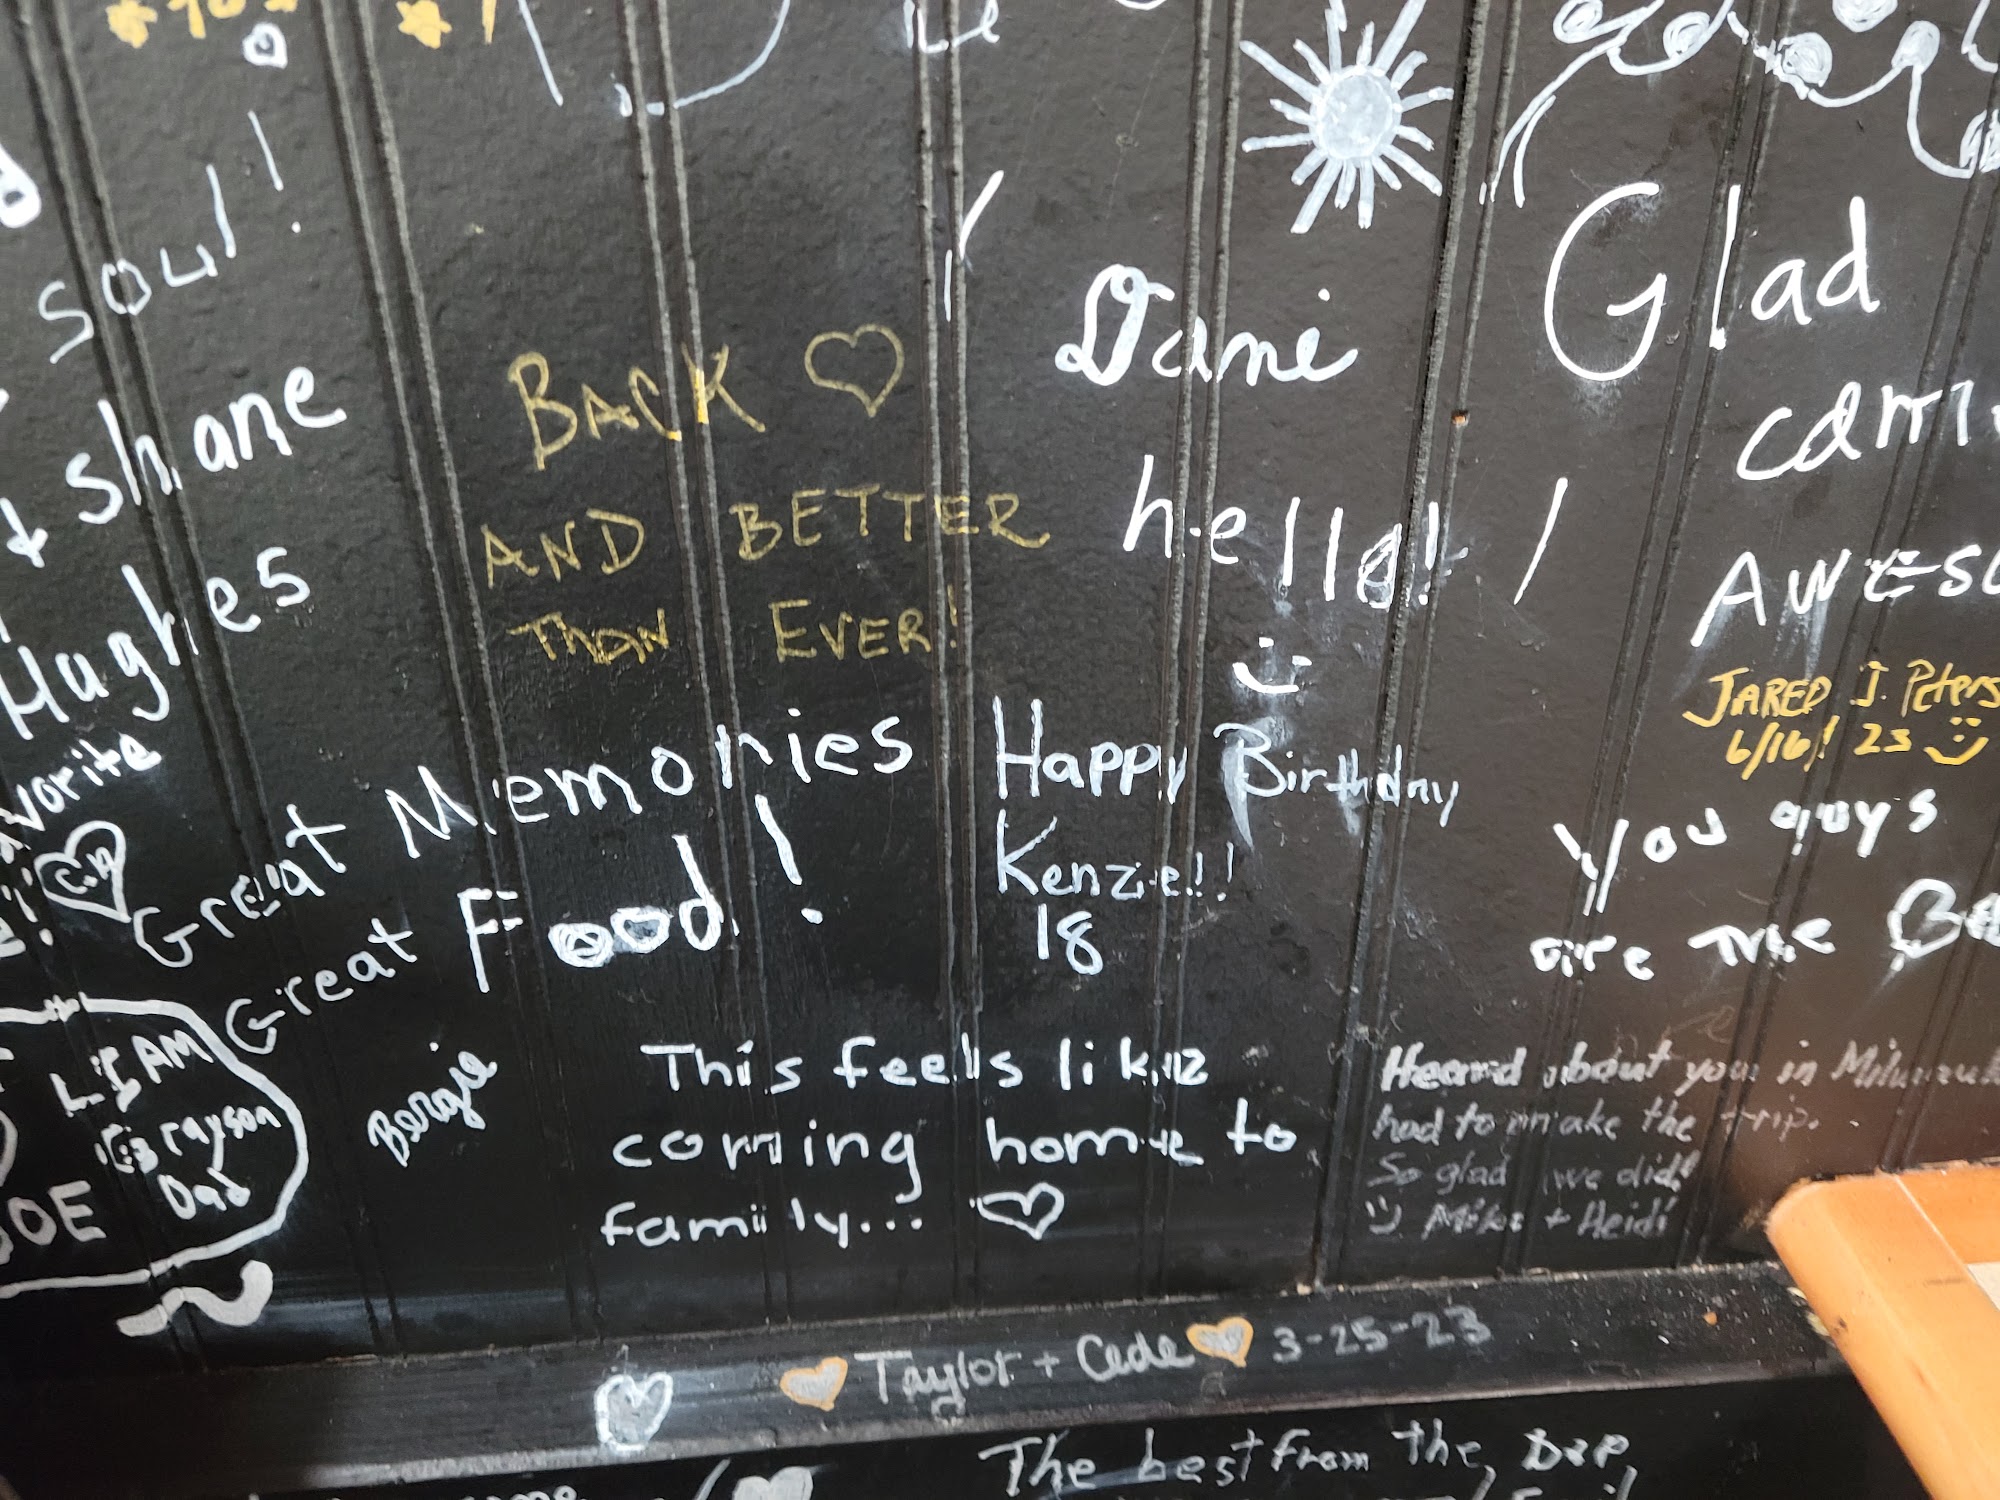 soul!
+ shane
Hughes
BACK
AND BETTER
THAN EVER!
Dani
hello!
Glad
AWESO
JARED J. Peters
6/16/23
Great Memories
Great Food!
Happy Birthday
Kenzie!!
18
You guys
are The Be
LIAM
Grayson
Dad
JOE
Bergie
This feels like
coming home to
family...
Heard about you in Milwauk
had to make the trip.
So glad we did!
Mike + Heidi
Taylor + Cade 3-25-23
The best from the